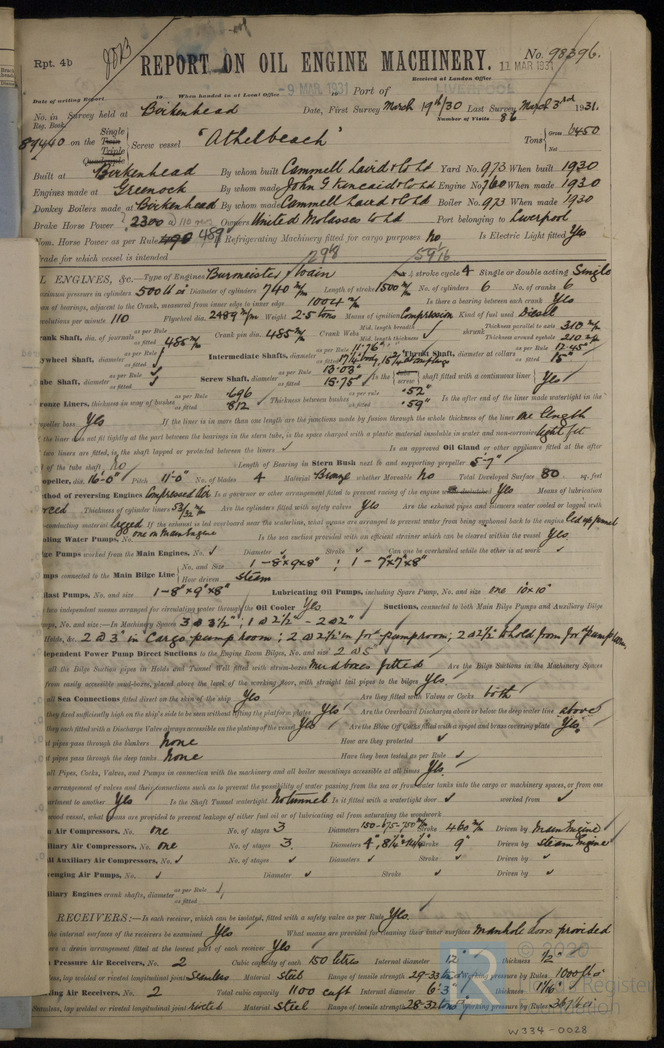 Rpt. 4b
REPORT ON OIL ENGINE MACHINERY.
No. 98396.
11 MAR 1931
Received at London Office
Date of writing Report 19 When handed in at Local Office -9 MAR 1931 19 Port of LIVERPOOL
No. in Survey held at Birkenhead Date, First Survey March 19th/30 Last Survey March 3rd 1931.
Reg. Book. Number of Visits 86
89440 on the Single Twin Triple Quadruple Screw vessel "Athelbeach" Tons Gross 6450 Net
Built at Birkenhead By whom built Cammell Laird & Co Ld Yard No. 973 When built 1930
Engines made at Greenock By whom made John G Kincaid & Co Ld Engine No. 760 When made 1930
Donkey Boilers made at Birkenhead By whom made Cammell Laird & Co Ld Boiler No. 973 When made 1930
Brake Horse Power 2300 Owners United Molasses Co Ld Port belonging to Liverpool
Nom. Horse Power as per Rule 490 489 Refrigerating Machinery fitted for cargo purposes No Is Electric Light fitted Yes
Trade for which vessel is intended
L ENGINES, &c.—Type of Engines Burmeister & Wain 2 or 4 stroke cycle 4 Single or double acting Single
aximum pressure in cylinders 500 Diameter of cylinders 740 m/m Length of stroke 1500 m/m No. of cylinders 6 No. of cranks 6
an of bearings, adjacent to the Crank, measured from inner edge to inner edge 1004 m/m Is there a bearing between each crank Yes
evolutions per minute 110 Flywheel dia. 2489 m/m Weight 2.5 tons Means of ignition Compression Kind of fuel used Diesel
rank Shaft, dia. of journals as per Rule as fitted 485 m/m Crank pin dia. 485 m/m Crank Webs Mid. length breadth Mid. length thickness shrunk Thickness parallel to axis 310 m/m Thickness around eyehole 210 m/m
lywheel Shaft, diameter as per Rule as fitted Intermediate Shafts, diameter as per Rule 11.76" as fitted Thrust Shaft, diameter at collars as per Rule 12.45" as fitted 15"
ube Shaft, diameter as per Rule as fitted Screw Shaft, diameter as per Rule 13.03" as fitted 15.75" Is the screw shaft fitted with a continuous liner Yes
ronze Liners, thickness in way of bushes as per Rule .696 as fitted Thickness between bushes as per Rule .52" as fitted .59" Is the after end of the liner made watertight in the
opeller boss Yes If the liner is in more than one length are the junctions made by fusion through the whole thickness of the liner one length
the liner does not fit tightly at the part between the bearings in the stern tube, is the space charged with a plastic material insoluble in water and non-corrosive tight fit
two liners are fitted, is the shaft lapped or protected between the liners Is an approved Oil Gland or other appliance fitted at the after
d of the tube shaft No Length of Bearing in Stern Bush next to and supporting propeller 5'-7"
opeller, dia. 16'-0" Pitch 11'-0" No. of blades 4 Material Bronze whether Moveable No Total Developed Surface 80 sq. feet
ethod of reversing Engines Compressed Air Is a governor or other arrangement fitted to prevent racing of the engine Yes Means of lubrication
rced Thickness of cylinder liners Are the cylinders fitted with safety valves Yes Are the exhaust pipes and silencers water cooled or lagged with
n-conducting material lagged If the exhaust is led overboard near the waterline, what means are arranged to prevent water from being syphoned back to the engine led up funnel
oling Water Pumps, No. one on Main Engine Is the sea suction provided with an efficient strainer which can be cleared within the vessel Yes
lge Pumps worked from the Main Engines, No. Diameter Stroke Can one be overhauled while the other is at work
mps connected to the Main Bilge Line No. and Size 1-8"x9"x8" ; 1-7"x7"x8" How driven Steam
llast Pumps, No. and size 1-8"x9"x8" Lubricating Oil Pumps, including Spare Pump, No. and size one 10"x10"
two independent means arranged for circulating water through the Oil Cooler Yes Suctions, connected to both Main Bilge Pumps and Auxiliary Bilge
mps, No. and size:—In Machinery Spaces 3 @ 3½" ; 1 @ 2½" - 2 @ 2"
Holds, &c. 2 @ 3" in Cargo pump room ; 2 @ 2½" in for'd pumproom ; 2 @ 2½" to hold from for'd pump room,
dependent Power Pump Direct Suctions to the Engine Room Bilges, No. and size 2 @ 5"
all the Bilge Suction pipes in Holds and Tunnel Well fitted with strum-boxes mud boxes fitted Are the Bilge Suctions in the Machinery Spaces
from easily accessible mud-boxes, placed above the level of the working floor, with straight tail pipes to the bilges Yes
all Sea Connections fitted direct on the skin of the ship Yes Are they fitted with Valves or Cocks both
they fixed sufficiently high on the ship's side to be seen without lifting the platform plates Yes Are the Overboard Discharges above or below the deep water line above
they each fitted with a Discharge Valve always accessible on the plating of the vessel Yes Are the Blow Off Cocks fitted with a spigot and brass covering plate Yes
t pipes pass through the bunkers None How are they protected
t pipes pass through the deep tanks None Have they been tested as per Rule
all Pipes, Cocks, Valves, and Pumps in connection with the machinery and all boiler mountings accessible at all times Yes.
e arrangement of valves and their connections such as to prevent the possibility of water passing from the sea or from water tanks into the cargo or machinery spaces, or from one
artment to another Yes Is the Shaft Tunnel watertight No tunnel Is it fitted with a watertight door worked from
vessel, what means are provided to prevent leakage of either fuel oil or of lubricating oil from saturating the woodwork
n Air Compressors, No. one No. of stages 3 Diameters 150-675-750 m/m Stroke 460 m/m Driven by Main Engine
iliary Air Compressors, No. one No. of stages 3 Diameters Stroke 9" Driven by Steam Engine
ll Auxiliary Air Compressors, No. No. of stages Diameters Stroke Driven by
venging Air Pumps, No. Diameter Stroke Driven by
iliary Engines crank shafts, diameter as per Rule as fitted
RECEIVERS:—Is each receiver, which can be isolated, fitted with a safety valve as per Rule Yes.
the internal surfaces of the receivers be examined Yes What means are provided for cleaning their inner surfaces manhole doors provided
ere a drain arrangement fitted at the lowest part of each receiver Yes
Pressure Air Receivers, No. 2 Cubic capacity of each 150 litres Internal diameter 12" thickness ½"
less, lap welded or riveted longitudinal joint Seamless Material Steel Range of tensile strength 29-33 tons Working pressure by Rules 1000
ting Air Receivers, No. 2 Total cubic capacity 1100 cu ft Internal diameter 6'-3" thickness
Seamless, lap welded or riveted longitudinal joint riveted Material Steel Range of tensile strength 28-32 tons Working pressure by Rules
© 2020
Lloyd's Register
Foundation
W334-0028